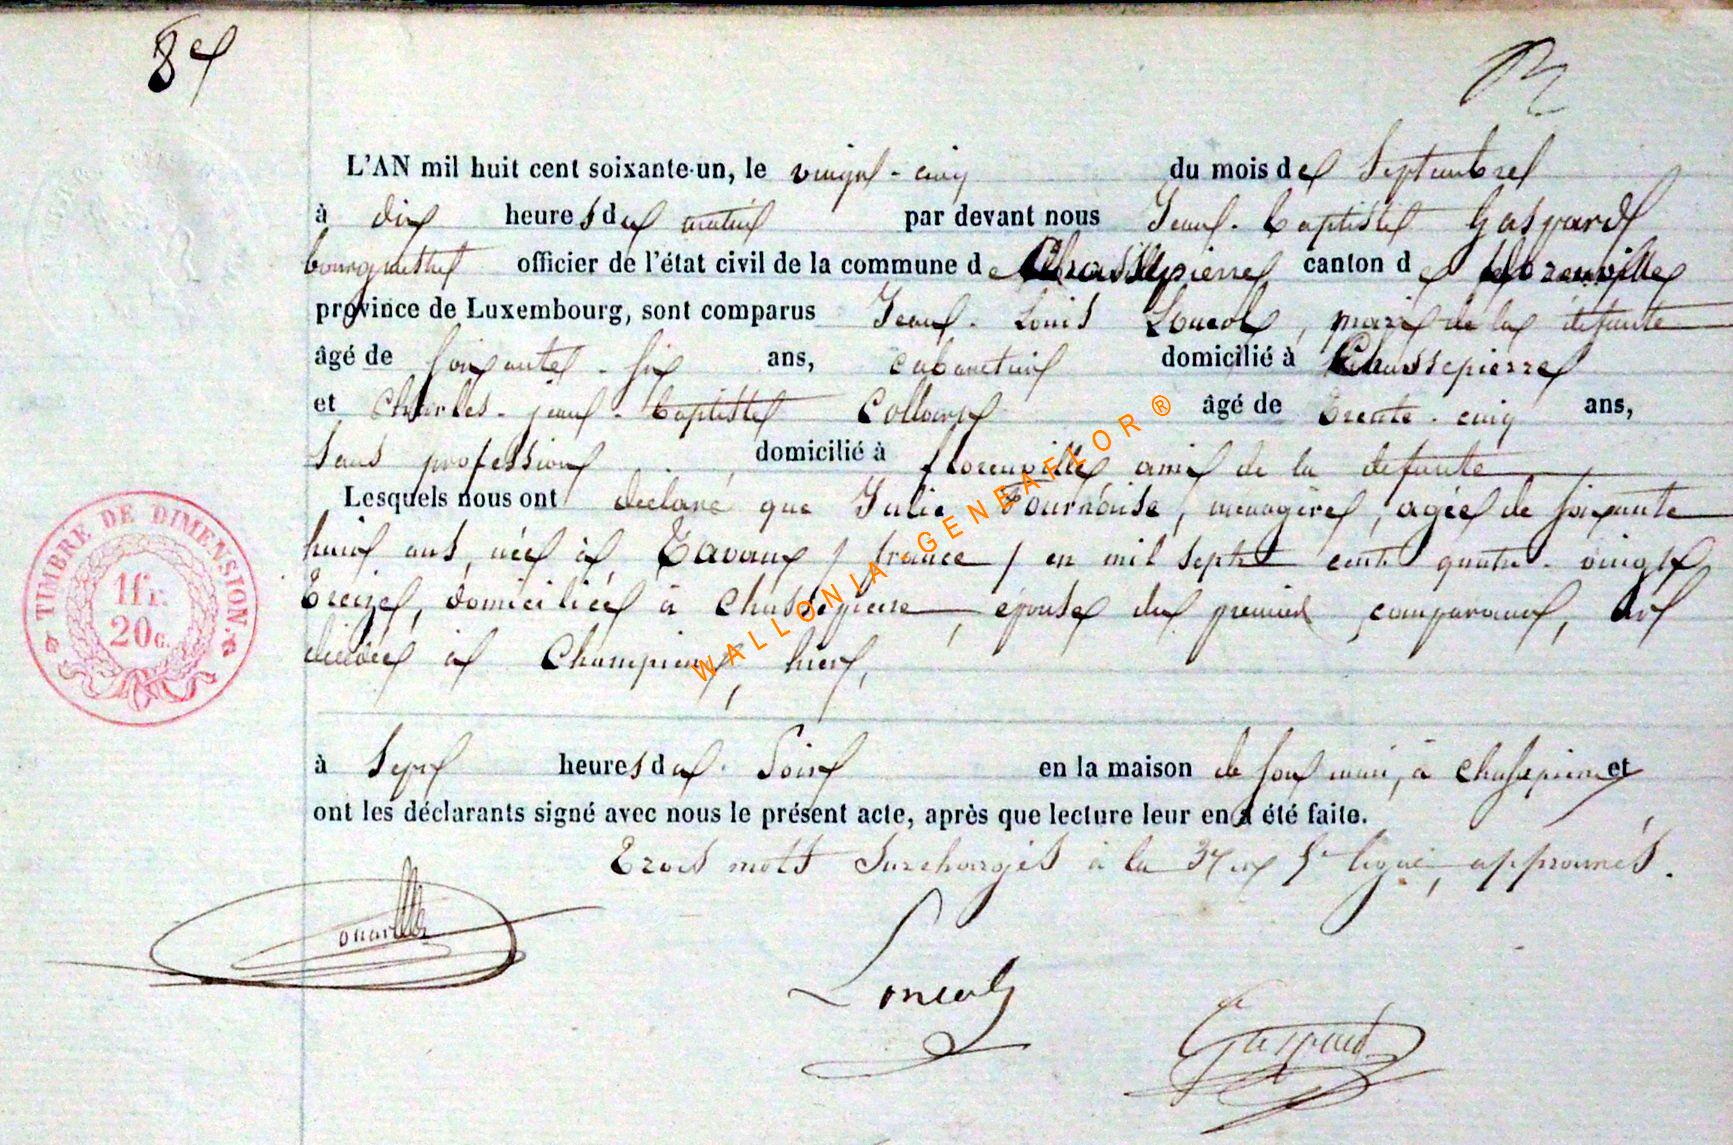 8e
L'AN mil huit cent soixante-un, le vingt-cinq du mois de Septembre
à dix heures du matin par devant nous Jean-Baptiste Gaspard
bourgmestre officier de l'état civil de la commune de Chassepierre canton de florenville
province de Luxembourg, sont comparus Jean-Louis , mari de la défunte
âgé de soixante-six ans, cabaretier domicilié à Chassepierre
et Charles-jean-baptiste Collard âgé de trente-cinq ans,
sans profession domicilié à florenville ami de la défunte
Lesquels nous ont déclaré que Julie Tournoise, menagère, agée de soixante
huit ans, née à Tavaux / france / en mil sept cent quatre-vingt
treize, domiciliée à Chassepierre, épouse du premier comparant, est
décédée à , hier,
à Sept heures du Soir en la maison de son mari, à Chassepierre et
ont les déclarants signé avec nous le présent acte, après que lecture leur en a été faite.
Trois mots surchargés à la 3e et 5e ligne, approuvés.
Gaspard
TIMBRE DE DIMENSION.
1fr.
20c.
WALLONIA GENEAFLOR ®